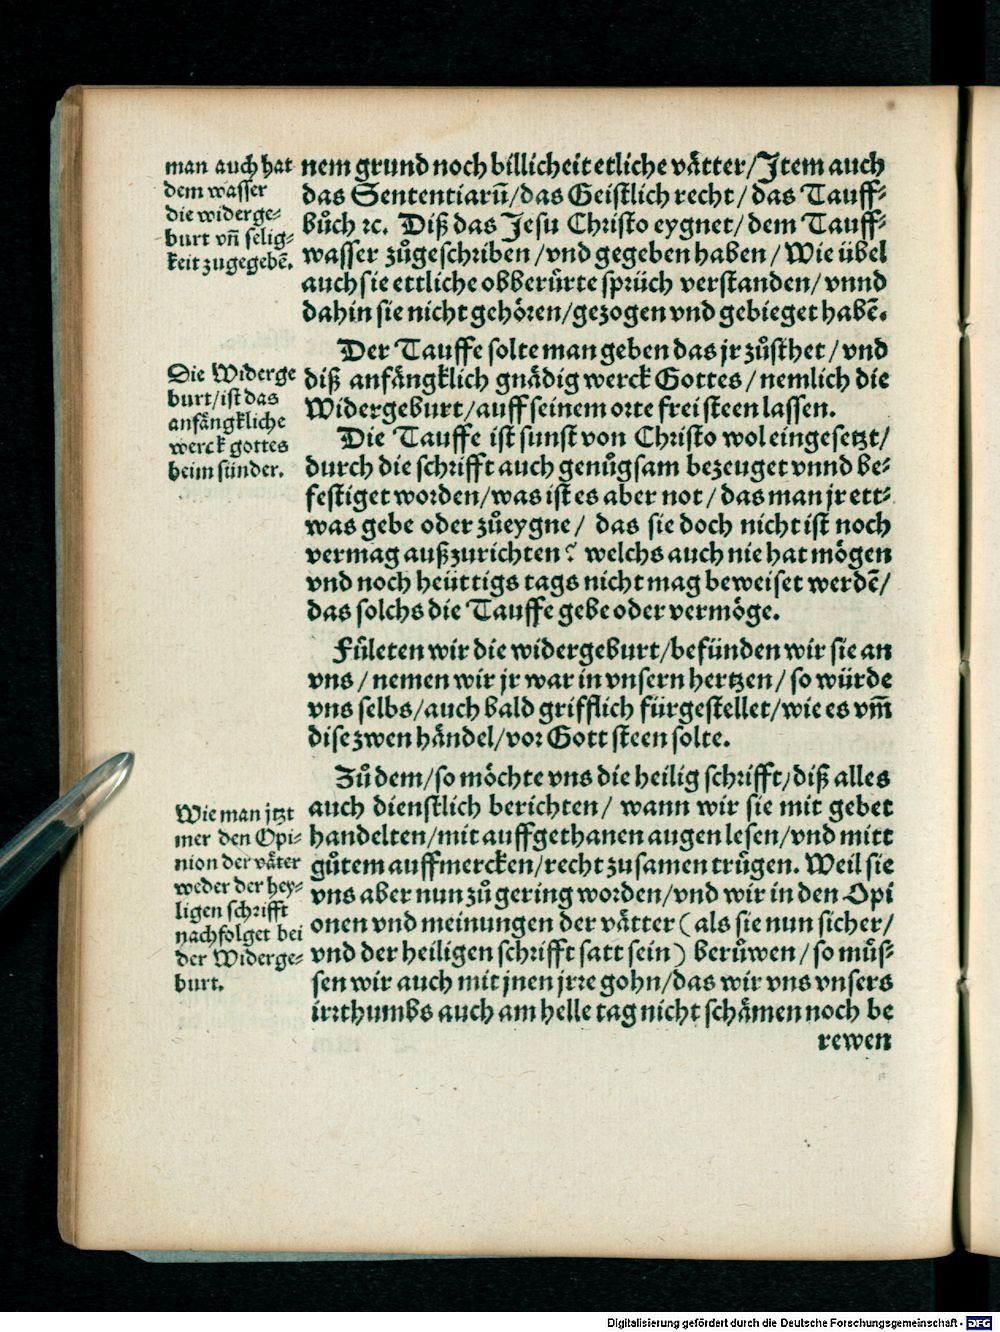 man auch hat
dem wasser
die widerge⸗
burt vn̄ selig⸗
keit zugegebē.
nem grund noch billicheit etliche vätter/Item auch
das Sententiarū/das Geistlich recht/das Tauff⸗
bůch ꝛc. Diß das Jesu Christo eygnet/dem Tauff⸗
wasser zůgeschriben/vnd gegeben haben/Wie übel
auch sie ettliche obberürte sprüch verstanden/vnnd
dahin sie nicht gehören/gezogen vnd gebieget habē.
Der Tauffe solte man geben das jr zůsthet/vnd
diß anfängklich gnädig werck Gottes/nemlich die
Widergeburt/auff seinem orte frei steen lassen.
Die Widerge
burt/ist das
anfängkliche
werck gottes
beim sünder.
Die Tauffe ist sunst von Christo wol eingesetzt/
durch die schrifft auch genůgsam bezeuget vnnd be⸗
festiget worden/was ist es aber not/das man jr ett⸗
was gebe oder zůeygne/ das sie doch nicht ist noch
vermag außzurichten? welchs auch nie hat mögen
vnd noch heüttigs tags nicht mag beweiset werdē/
das solchs die Tauffe gebe oder vermöge.
Fületen wir die widergeburt/befünden wir sie an
vns/nemen wir jr war in vnsern hertzen/so würde
vns selbs/auch bald grifflich fürgestellet/wie es vm̄
dise zwen händel/vor Gott steen solte.
Zů dem/so möchte vns die heilig schrifft/diß alles
auch dienstlich berichten/ wann wir sie mit gebet
handelten/mit auffgethanen augen lesen/vnd mitt
gůtem auffmercken/recht zusamen trügen. Weil sie
vns aber nun zů gering worden/vnd wir in den Opi
onen vnd meinungen der vätter (als sie nun sicher/
vnd der heiligen schrifft satt sein) berůwen/so müs⸗
sen wir auch mit jnen jrre gohn/das wir vns vnsers
irrthumbs auch am helle tag nicht schämen noch be
Wie man jtzt
mer den Opi⸗
nion der väter
weder der hey⸗
ligen schrifft
nachfolget bei
der Widerge⸗
burt.
rewen
Digitalisierung gefördert durch die Deutsche Forschungsgemeinschaft - DFG